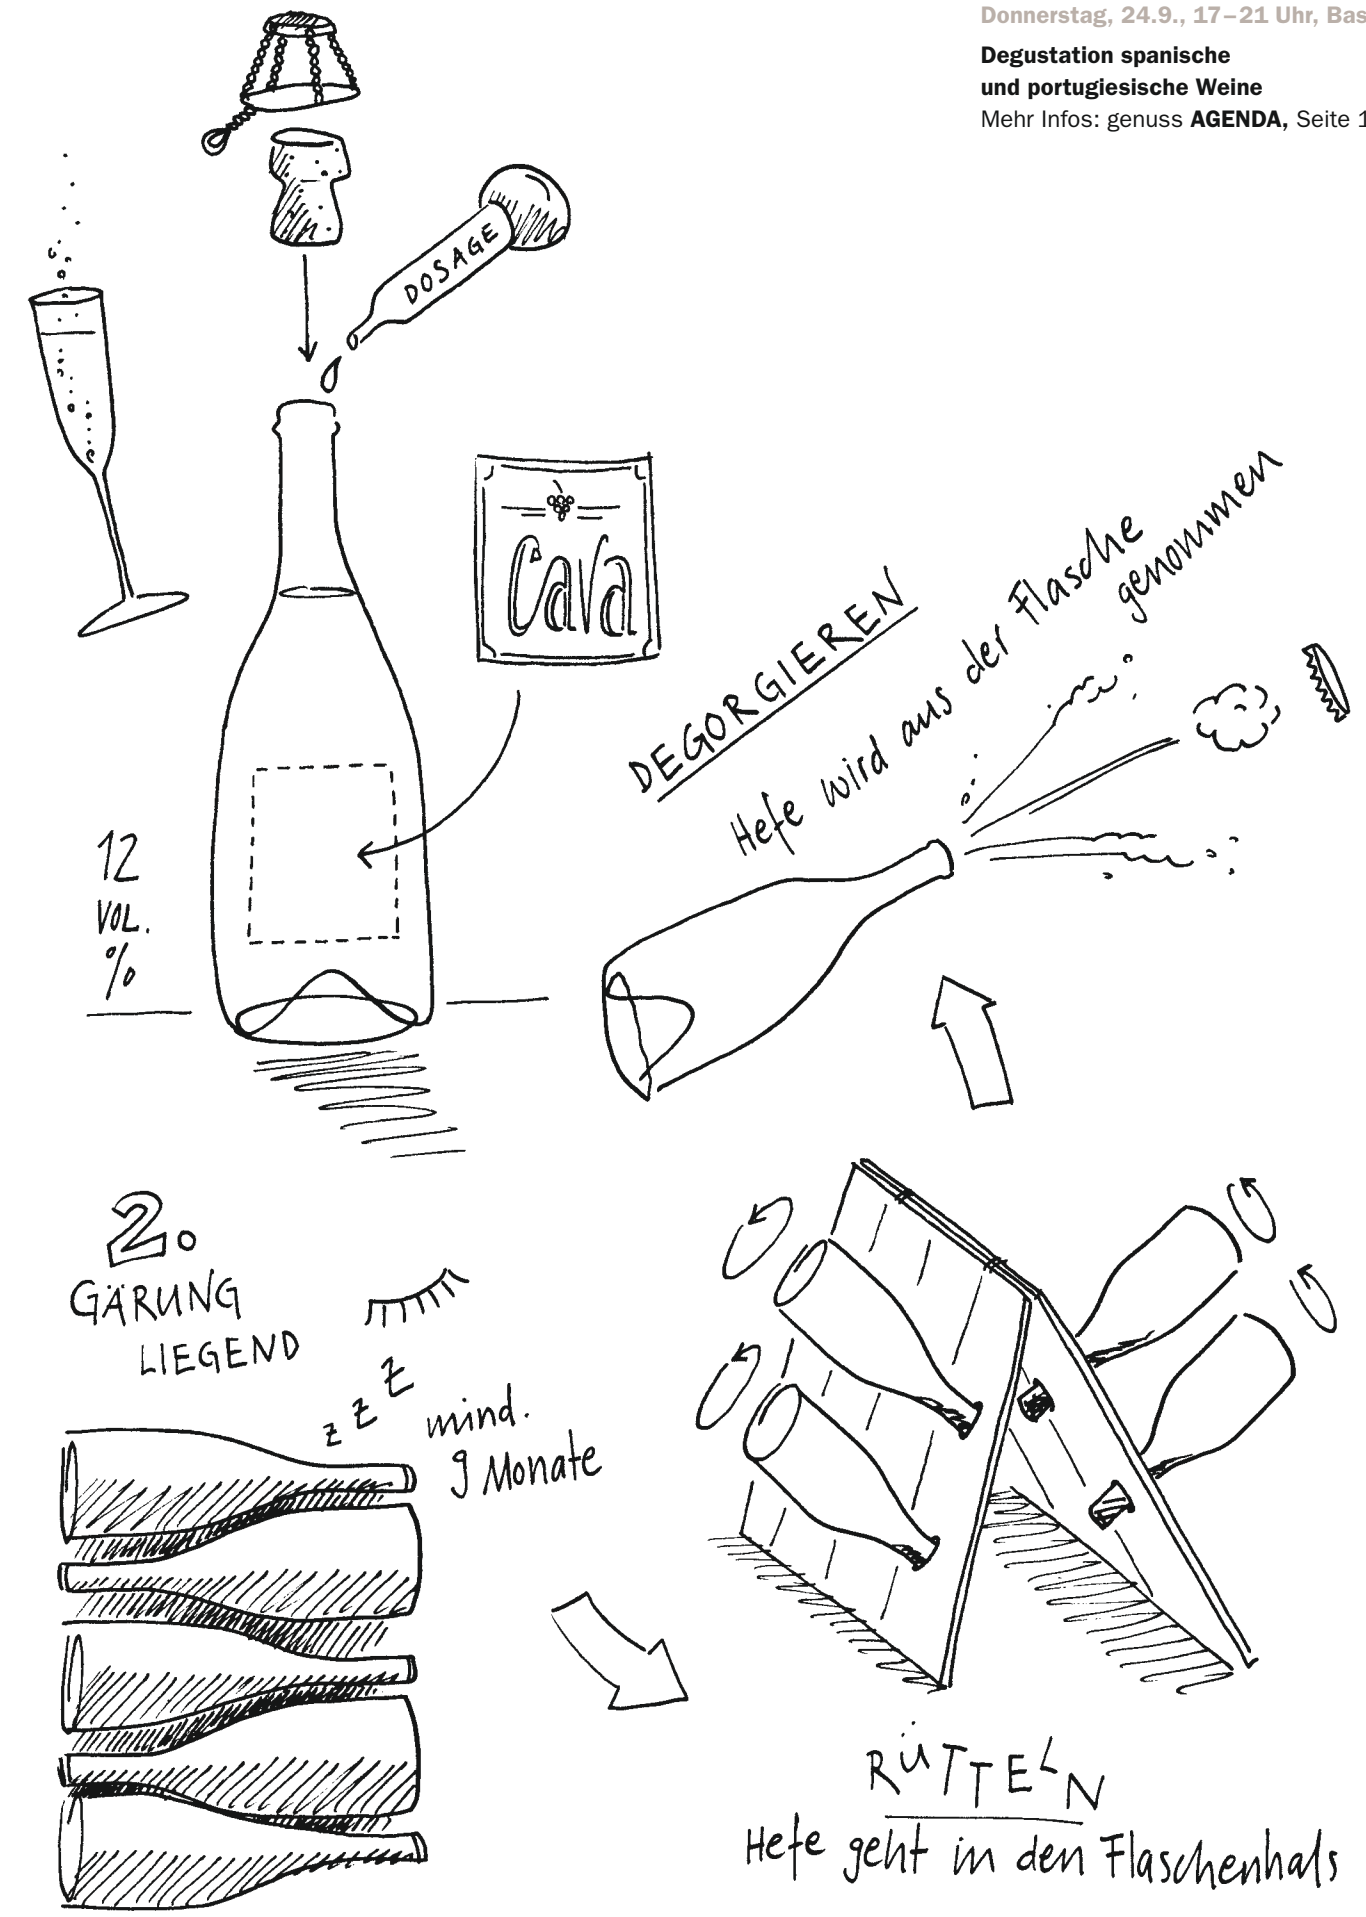 Donnerstag, 24.9., 17–21 Uhr, Bas
Degustation spanische
und portugiesische Weine
Mehr Infos: genuss AGENDA, Seite 1
DOSAGE
Cava
12
VOL.
%
DEGORGIEREN
Hefe wird aus der Flasche
genommen
2.
GÄRUNG
LIEGEND
z z z
mind.
9 Monate
RÜTTELN
Hefe geht in den Flaschenhals